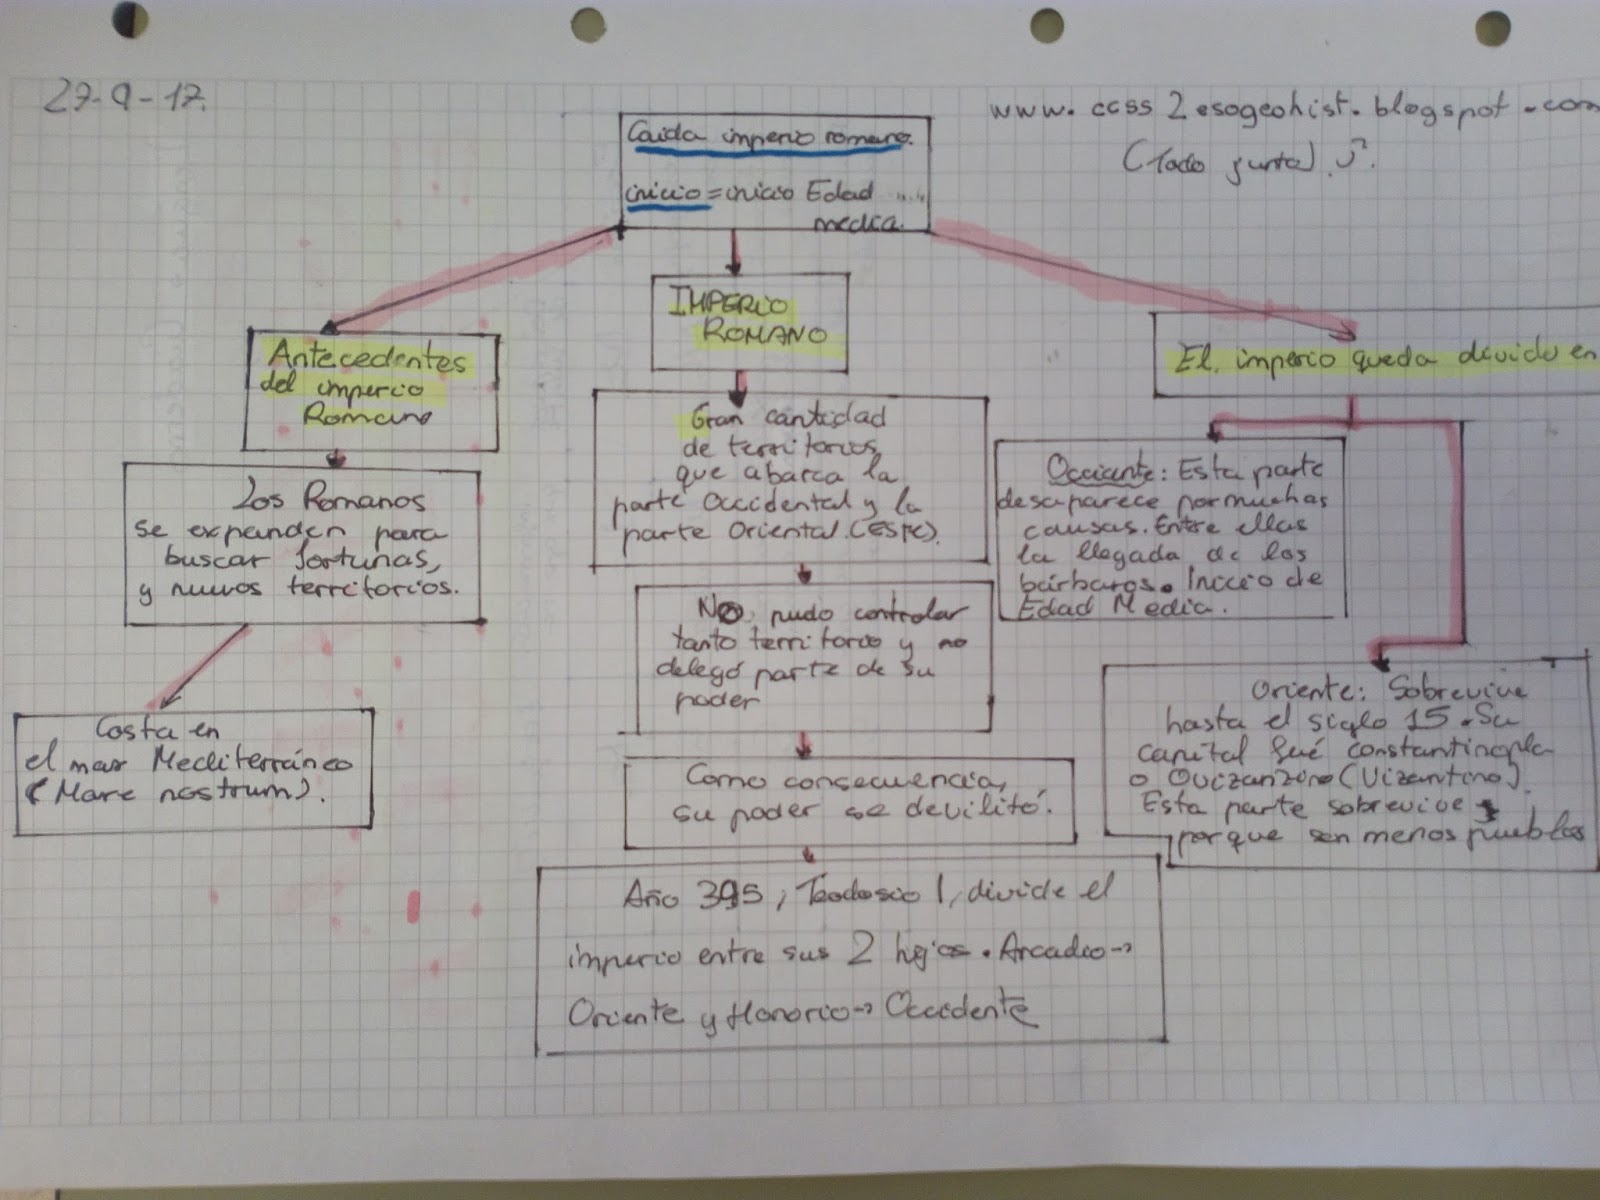 27-9-17.
www.ccss2esogeohist.blogspot.com
(Todo junto).
Caida imperio romano.
inicio = inicio Edad
media.
Antecedentes
del imperio
Romano
Los Romanos
se expanden para
buscar fortunas,
y nuevos territorios.
Costa en
el mar Mediterráneo
(Mare nostrum).
IMPERIO
ROMANO
Gran cantidad
de territorios,
que abarca la
parte Occidental y la
parte Oriental.(Este).
No pudo controlar
tanto territorio y no
delegó parte de su
poder
Como consecuencia,
su poder se devilitó.
Año 395, Teodosio I, divide el
imperio entre sus 2 hijos. Arcadio→
Oriente y Honorio→ Occidente
El imperio queda divido en
Occiante: Esta parte
desaparece por muchas
causas. Entre ellas
la llegada de los
bárbaros. Inicio de
Edad Media.
Oriente: Sobrevive
hasta el siglo 15. Su
capital fué constantinopla
o (Vizantino).
Esta parte sobrevive
porque son menos pueblos